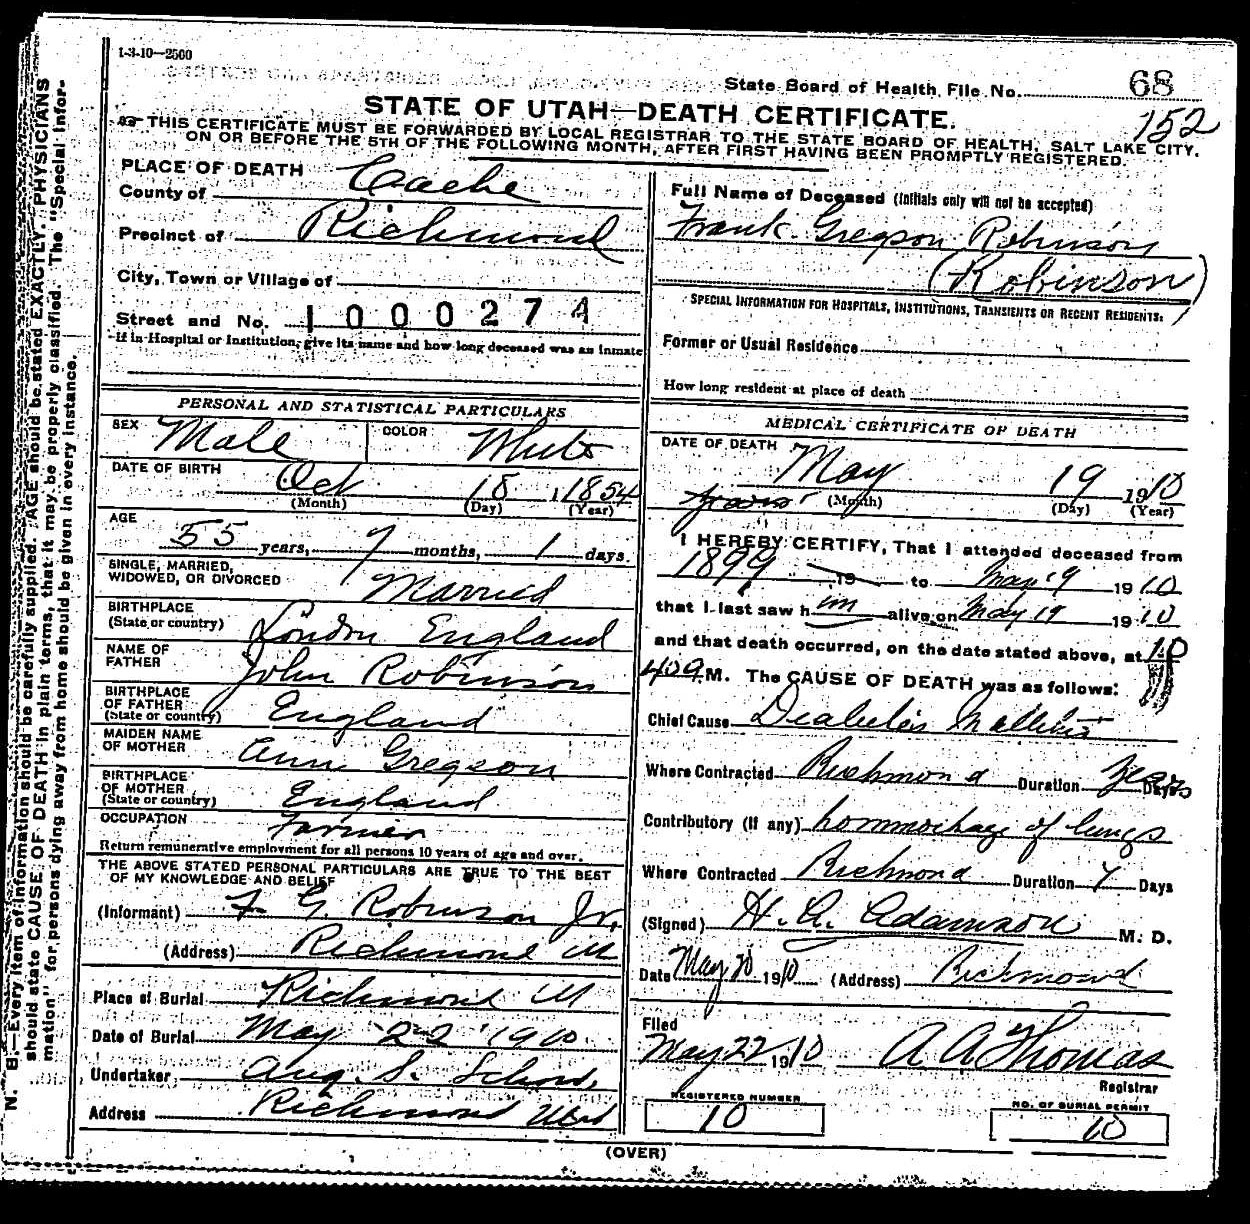 1-3-10—2500
State Board of Health File No. 68
152
STATE OF UTAH—DEATH CERTIFICATE.
THIS CERTIFICATE MUST BE FORWARDED BY LOCAL REGISTRAR TO THE STATE BOARD OF HEALTH, SALT LAKE CITY,
ON OR BEFORE THE 5TH OF THE FOLLOWING MONTH, AFTER FIRST HAVING BEEN PROMPTLY REGISTERED.
PLACE OF DEATH
County of Cache
Precinct of Richmond
City, Town or Village of
Street and No. 1000274
If in Hospital or Institution, give its name and how long deceased was an inmate
PERSONAL AND STATISTICAL PARTICULARS
SEX Male COLOR White
DATE OF BIRTH Oct 18, 1854
(Month) (Day) (Year)
AGE
55 years, 7 months, 1 days.
SINGLE, MARRIED,
WIDOWED, OR DIVORCED Married
BIRTHPLACE
(State or country) London England
NAME OF
FATHER John Robinson
BIRTHPLACE
OF FATHER
(State or country) England
MAIDEN NAME
OF MOTHER Ann Gregson
BIRTHPLACE
OF MOTHER
(State or country) England
OCCUPATION Farmer
Return remunerative employment for all persons 10 years of age and over.
THE ABOVE STATED PERSONAL PARTICULARS ARE TRUE TO THE BEST
OF MY KNOWLEDGE AND BELIEF
(Informant) F. G. Robinson Jr.
(Address) Richmond Ut
Place of Burial Richmond Ut
Date of Burial May 22 1910
Undertaker Aug. S.
Address Richmond Utah
Full Name of Deceased (Initials only will not be accepted)
Frank Gregson Robinson
(Robinson)
SPECIAL INFORMATION FOR HOSPITALS, INSTITUTIONS, TRANSIENTS OR RECENT RESIDENTS:
Former or Usual Residence
How long resident at place of death
MEDICAL CERTIFICATE OF DEATH
DATE OF DEATH May 19 1910
years (Month) (Day) (Year)
I HEREBY CERTIFY, That I attended deceased from
1899 19 to May 19 1910
that I last saw him alive on May 19 1910
and that death occurred, on the date stated above, at 10
40 a.M. The CAUSE OF DEATH was as follows:
Chief Cause Diabetis Mallitis
Where Contracted Richmond Duration years Days
Contributory (if any) hommorhage of lungs
Where Contracted Richmond Duration 7 Days
(Signed) H. A. Adamson M. D.
Date May 20 1910 (Address) Richmond
Filed
May 22 1910 A A Thomas
Registrar
REGISTERED NUMBER
10
NO. OF BURIAL PERMIT
10
(OVER)
N. B.—Every item of information should be carefully supplied. AGE should be stated EXACTLY. PHYSICIANS
should state CAUSE OF DEATH in plain terms, that it may be properly classified. The "Special Infor-
mation" for persons dying away from home should be given in every instance.